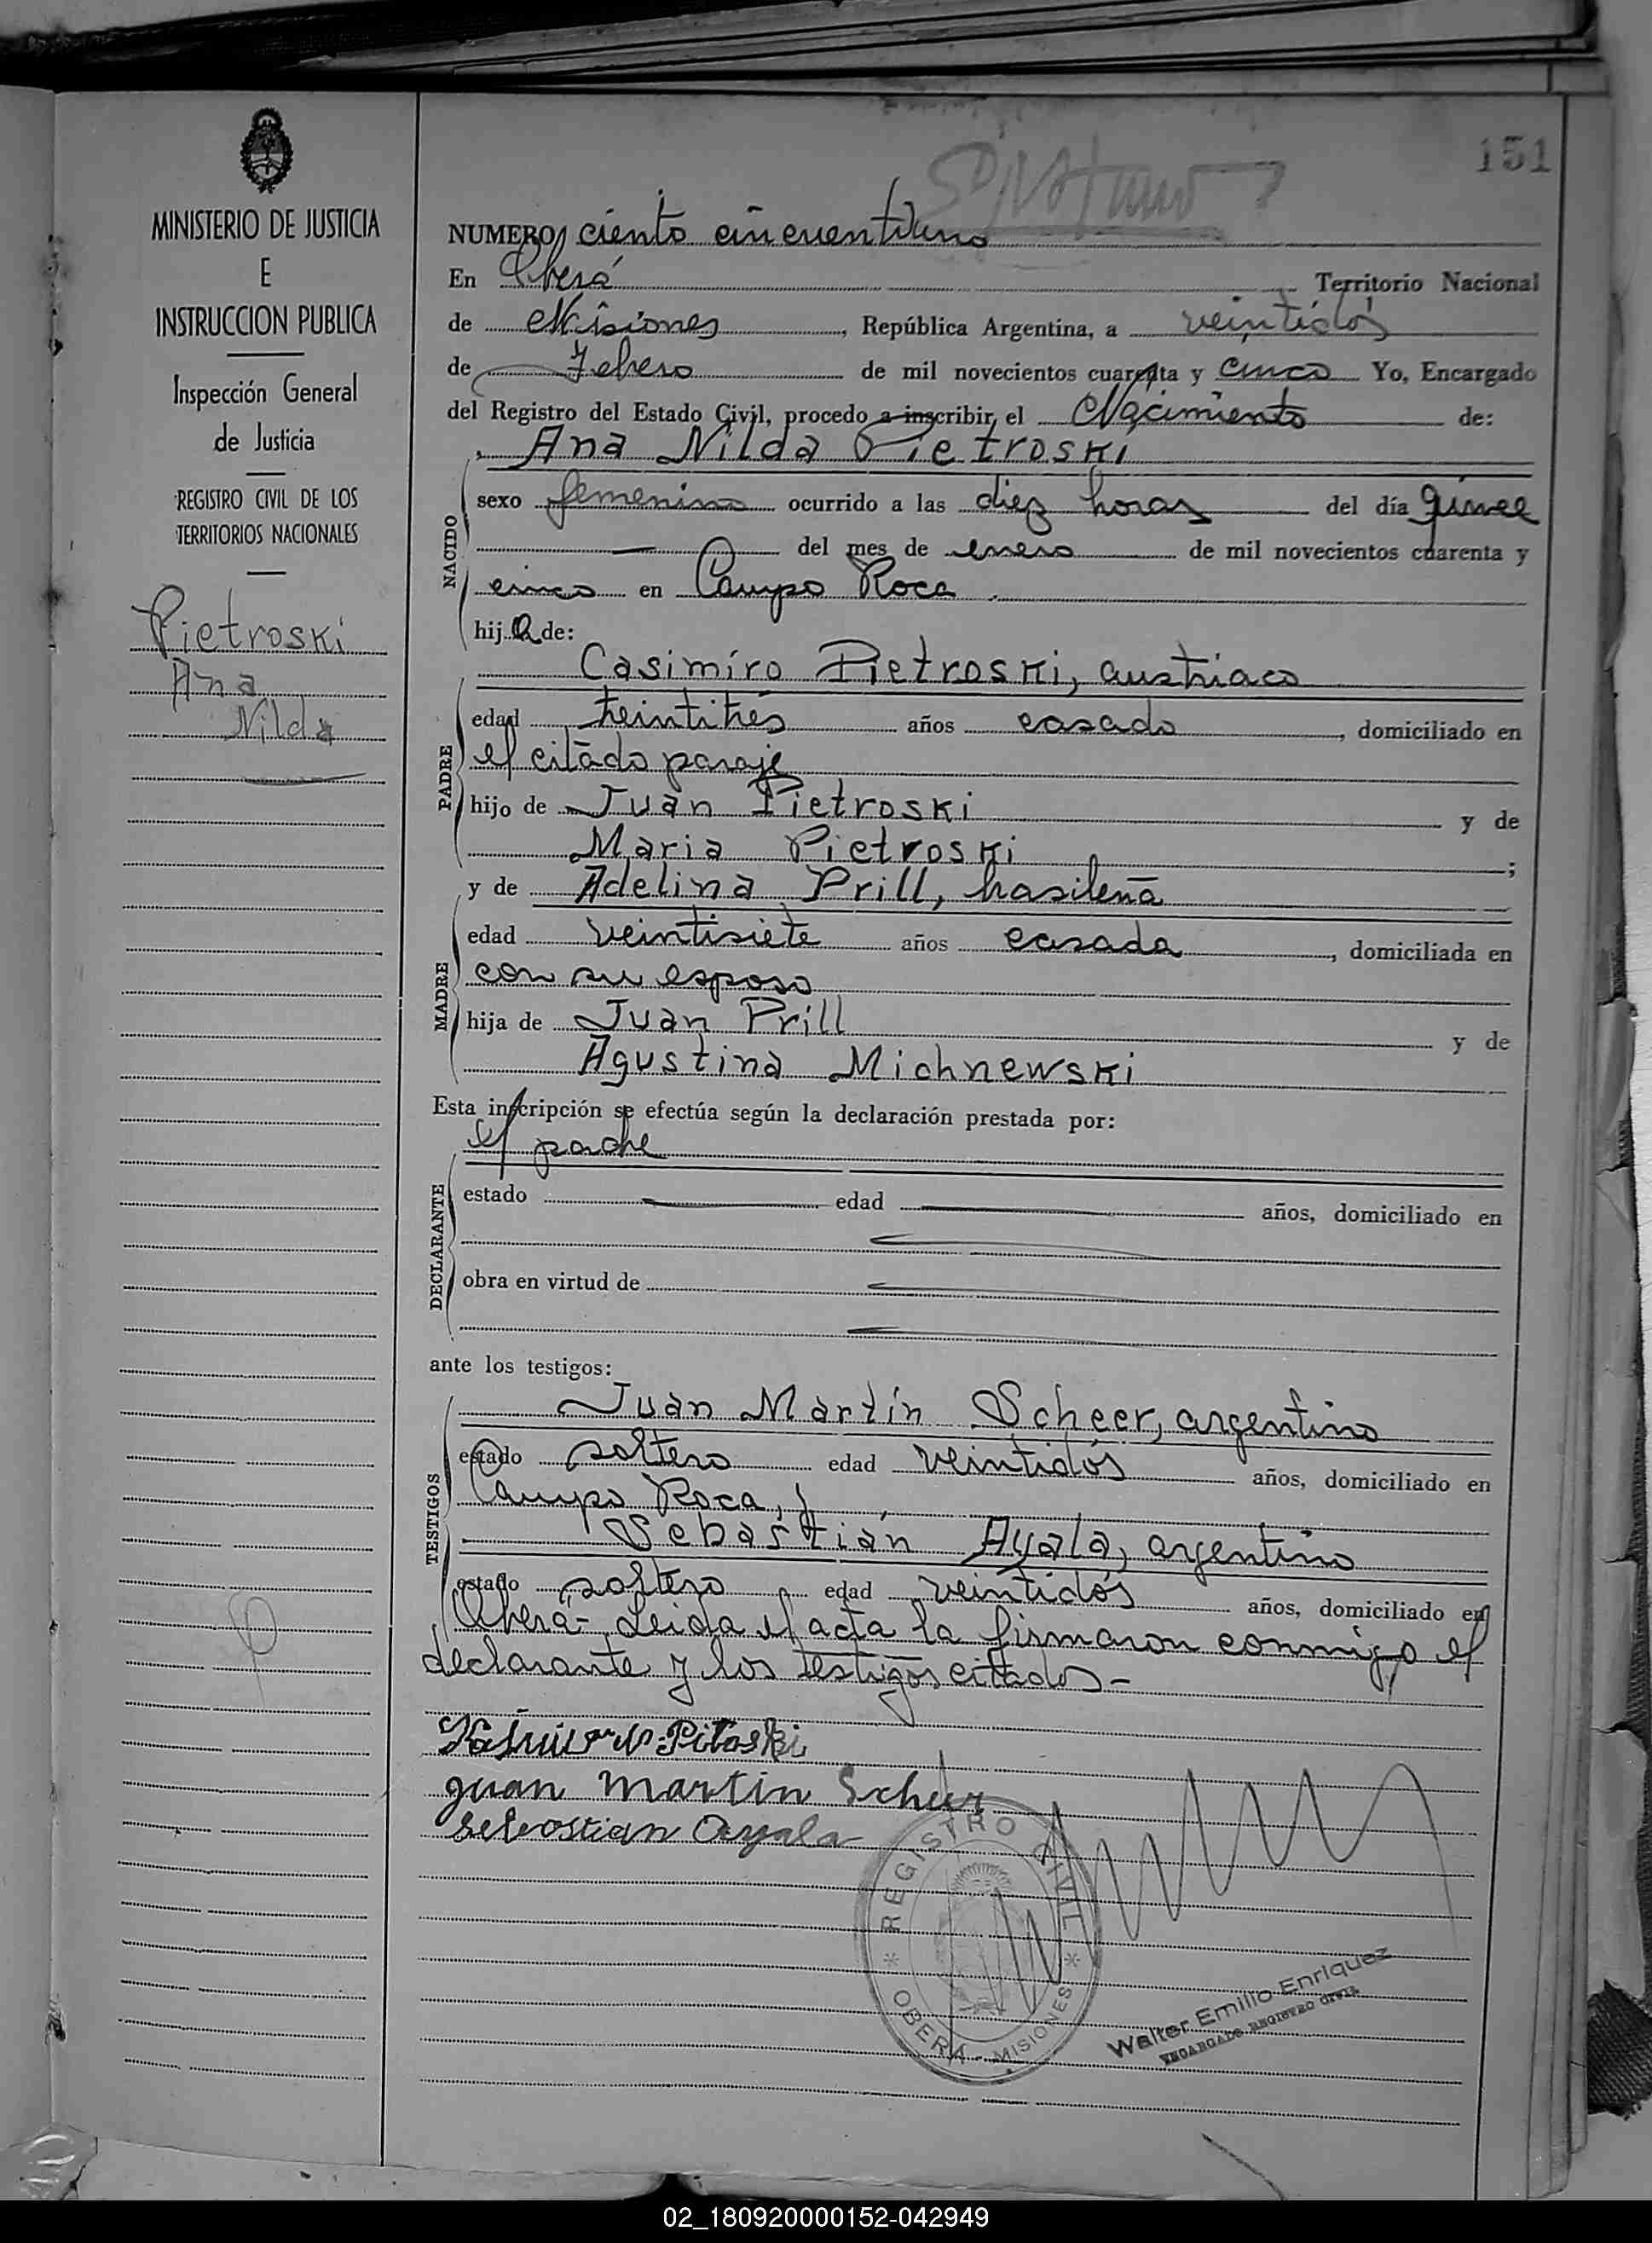 151
MINISTERIO DE JUSTICIA
E
INSTRUCCION PUBLICA
Inspección General
de Justicia
REGISTRO CIVIL DE LOS
TERRITORIOS NACIONALES
Pietroski
Ana
Nilda
NUMERO ciento cincuentiuno
En Oberá Territorio Nacional
de Misiones, República Argentina, a veintidós
de Febrero de mil novecientos cuarenta y cinco Yo, Encargado
del Registro del Estado Civil, procedo a inscribir el Nacimiento de:
Ana Nilda Pietroski
NACIDO
sexo femenino ocurrido a las diez horas del día quince
del mes de enero de mil novecientos cuarenta y
cinco en Campo Roca
hija de:
Casimíro Pietroski, austriaco
PADRE
edad treintitrés años casado, domiciliado en
el citado paraje
hijo de Juan Pietroski y de
Maria Pietroski;
y de Adelina Prill, brasileña
MADRE
edad veintisiete años casada, domiciliada en
con su esposo
hija de Juan Prill y de
Agustina Michnewski
Esta inscripción se efectúa según la declaración prestada por:
el padre
DECLARANTE
estado edad años, domiciliado en
obra en virtud de
ante los testigos:
TESTIGOS
Juan Martín Scheer, argentino
estado soltero edad veintidós años, domiciliado en
Campo Roca, y
Sebastián Ayala, argentino
estado soltero edad veintidós años, domiciliado en
Oberá- Leida el acta la firmaron conmigo el
declarante y los testigos citados-
Pitroski
Juan Martin Scheer
Sebastian Ayala
REGISTRO CIVIL
OBERA - MISIONES
Walter Emilio Enriquez
ENCARGADO REGISTRO CIVIL
02_180920000152-042949